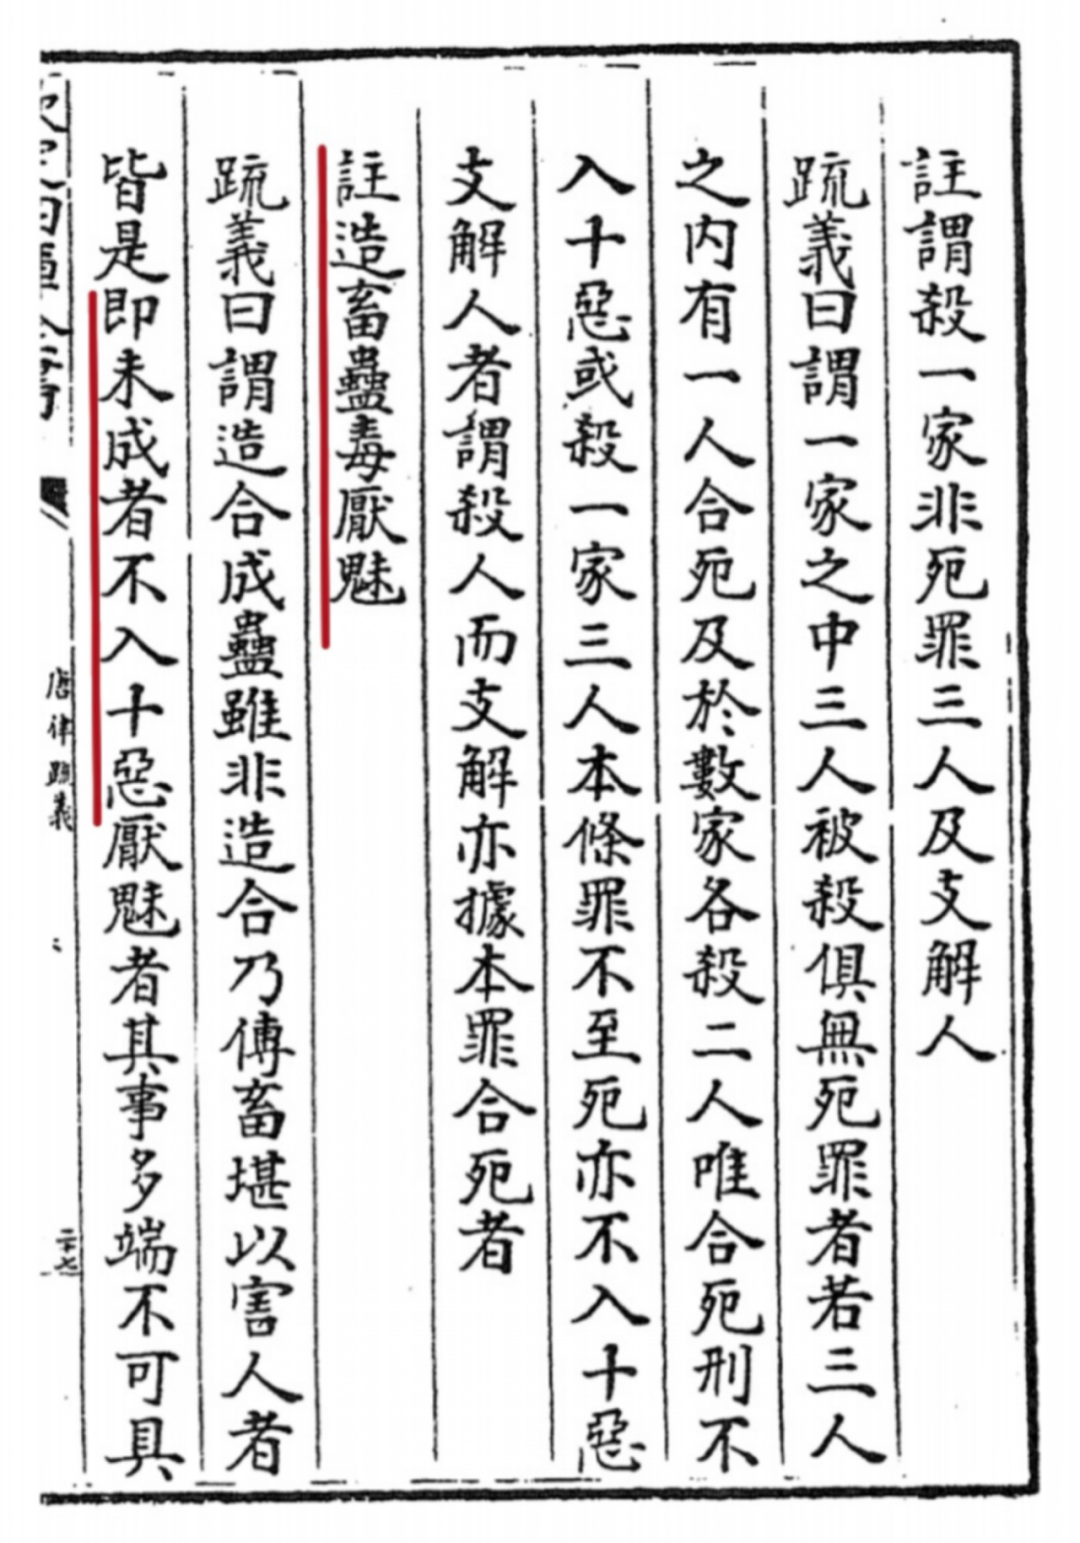 註謂殺一家非死罪三人及支解人
䟽義曰謂一家之中三人被殺俱無死罪者若三人
之内有一人合死及於數家各殺二人唯合死刑不
入十惡或殺一家三人本條罪不至死亦不入十惡
支解人者謂殺人而支解亦據本罪合死者
註造畜蠱毒厭魅
䟽義曰謂造合成蠱雖非造合乃傳畜堪以害人者
皆是即未成者不入十惡厭魅者其事多端不可具
唐律疏義
二十七